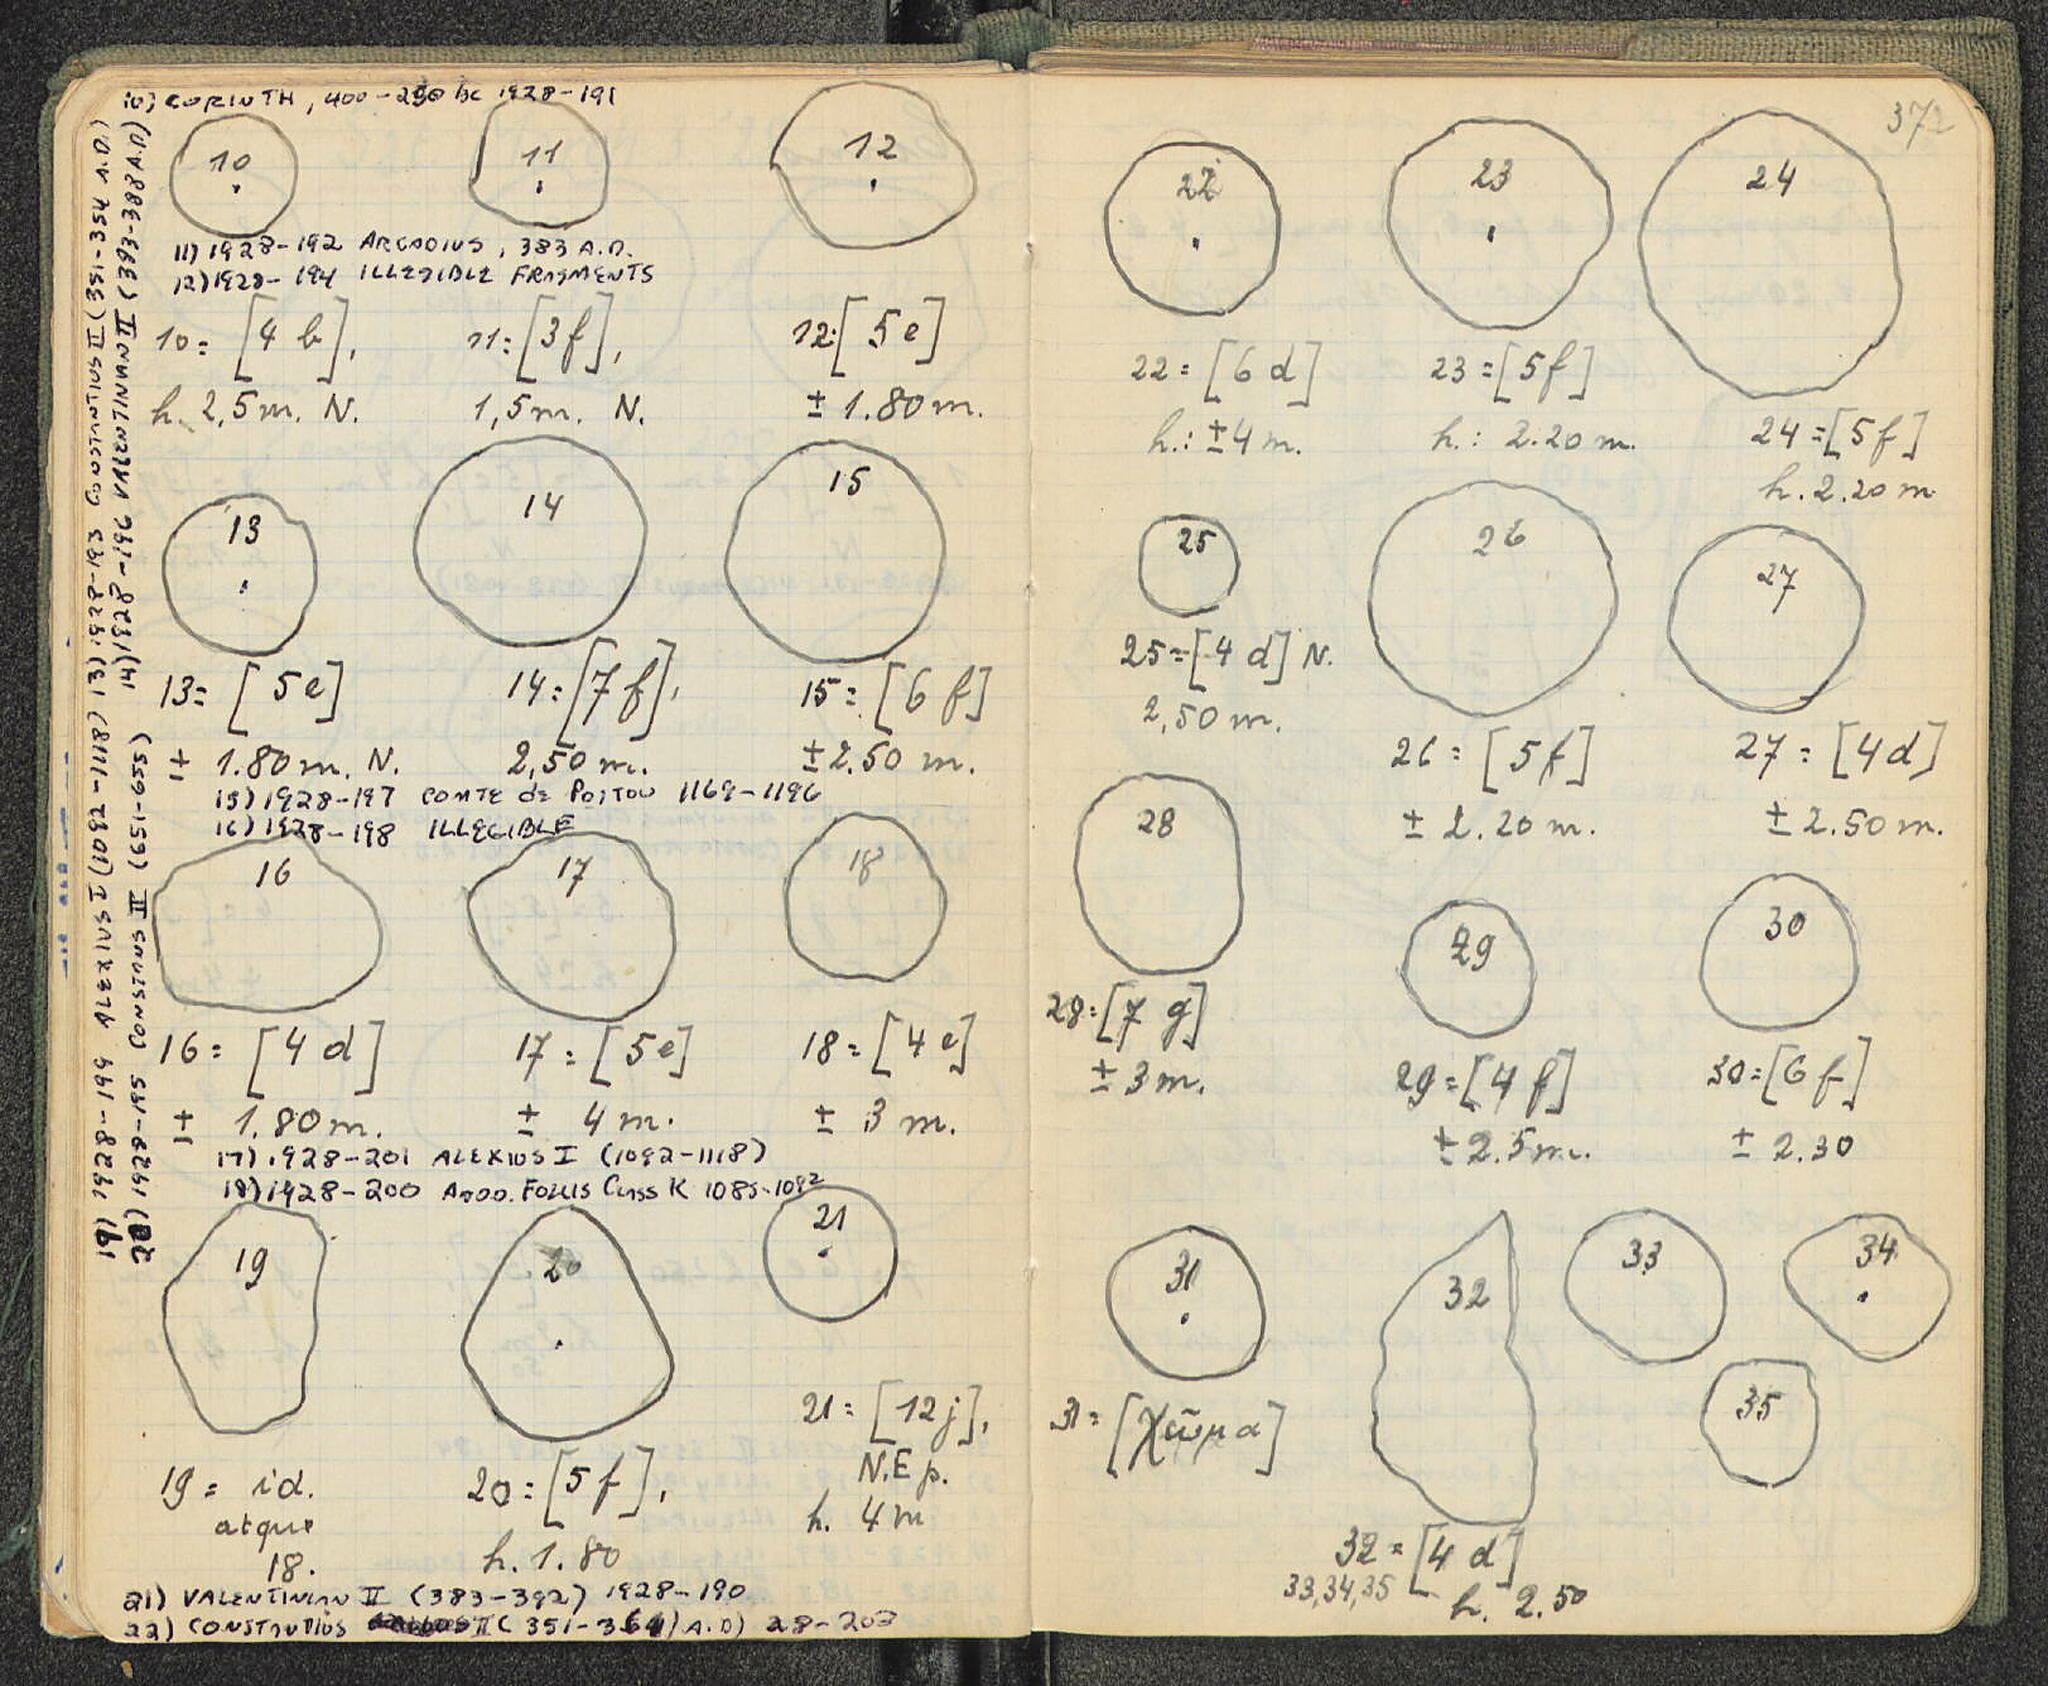 10) CORINTH, 400-250 BC 1928-191
10
11
12
11) 1928-192 ARCADIUS, 383 A.D.
12) 1928-194 ILLEGIBLE FRAGMENTS
10= [4 b],
11= [3 f],
12= [5 e]
h. 2,5 m. N.
1,5 m. N.
± 1.80 m.
13
14
15
13= [5 e]
14= [7 f],
15= [6 f]
± 1.80 m. N.
2,50 m.
± 2.50 m.
15) 1928-197 COMTE de POITOU 1169-1196
16) 1928-198 ILLEGIBLE
16
17
18
16= [4 d]
17= [5 e]
18= [4 e]
± 1.80 m.
± 4 m.
± 3 m.
17) 1928-201 ALEXIUS I (1092-1118)
18) 1928-200 ANON. FOLLIS CLASS K 1085-1092
19
20
21
21= [12 j],
N.E p.
h. 4 m
19= id.
atque
18.
20= [5 f],
h. 1.80
21) VALENTINIAN II (383-392) 1928-190
22) CONSTANTIUS II (351-361) A.D) 28-202
19) 1928-199 ALEXIUS I (1092-1118) 13) 1928-193 CONSTANTIUS II (351-354 A.D.)
20) 1928-195 CONSTANS II (651-655) 14) 1928-196 VALENTINIAN II (383-388 A.D)
372
22
23
24
22= [6 d]
23= [5 f]
h.: ±4 m.
h.: 2.20 m.
24= [5 f]
h. 2.20 m
25
26
27
25= [4 d] N.
2,50 m.
26= [5 f]
27= [4 d]
± 2.20 m.
± 2.50 m.
28
29
30
28= [7 g]
± 3 m.
29= [4 f]
30= [6 f]
± 2.5 m.
± 2.30
31
32
33
34
35
31= [χῶμα]
32= [4 d]
33,34,35
h. 2.50